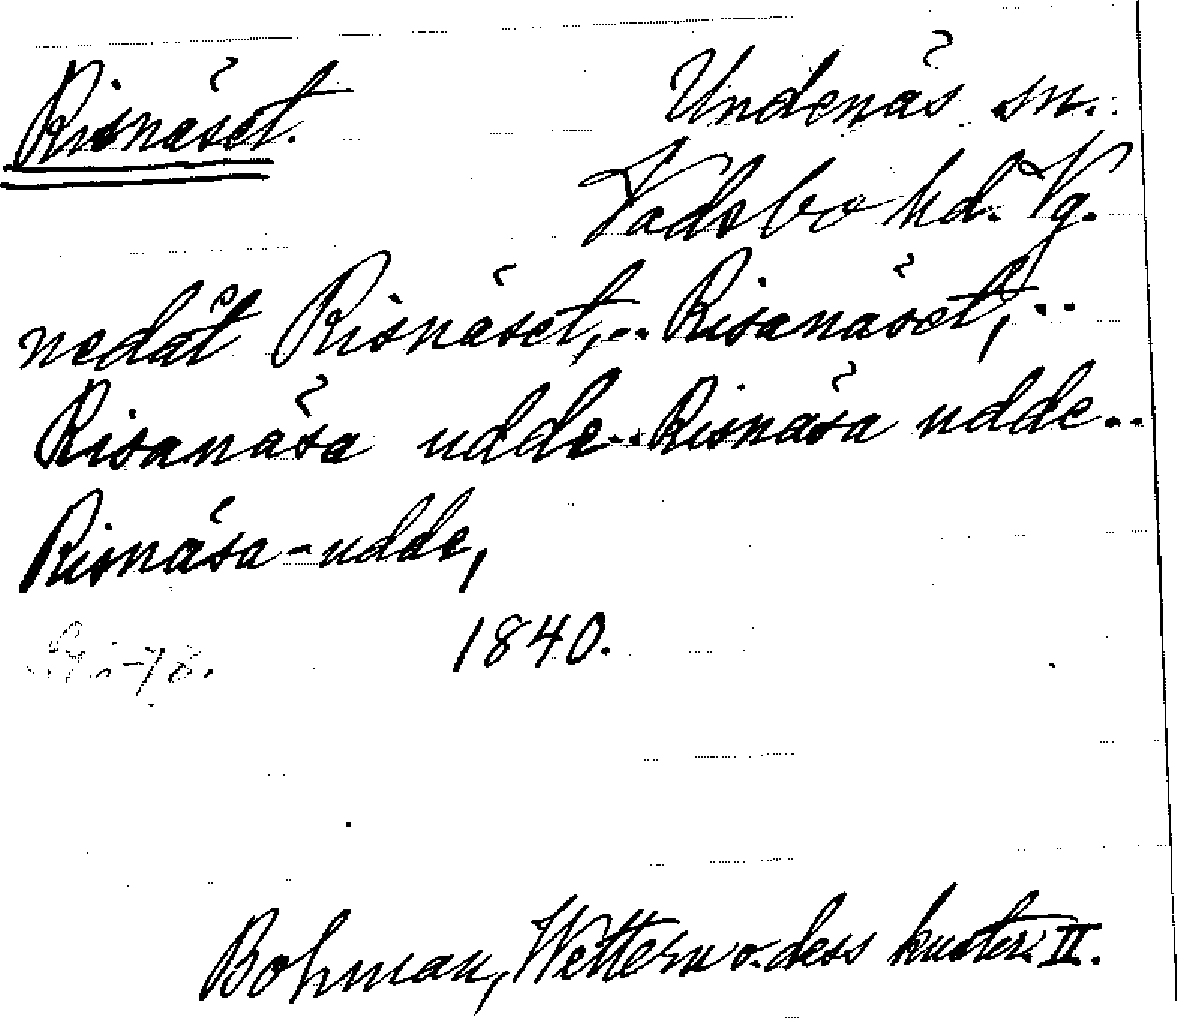 Risnäset. Undenäs sn.
Vadsbo hd. Vg.
nedåt Risnäset,.. Risanäset,..
Risanäsa udde.. Risnäsa udde..
Risnäsa-udde,
1840.
Bohman, Wettern o. dess kuster. II.